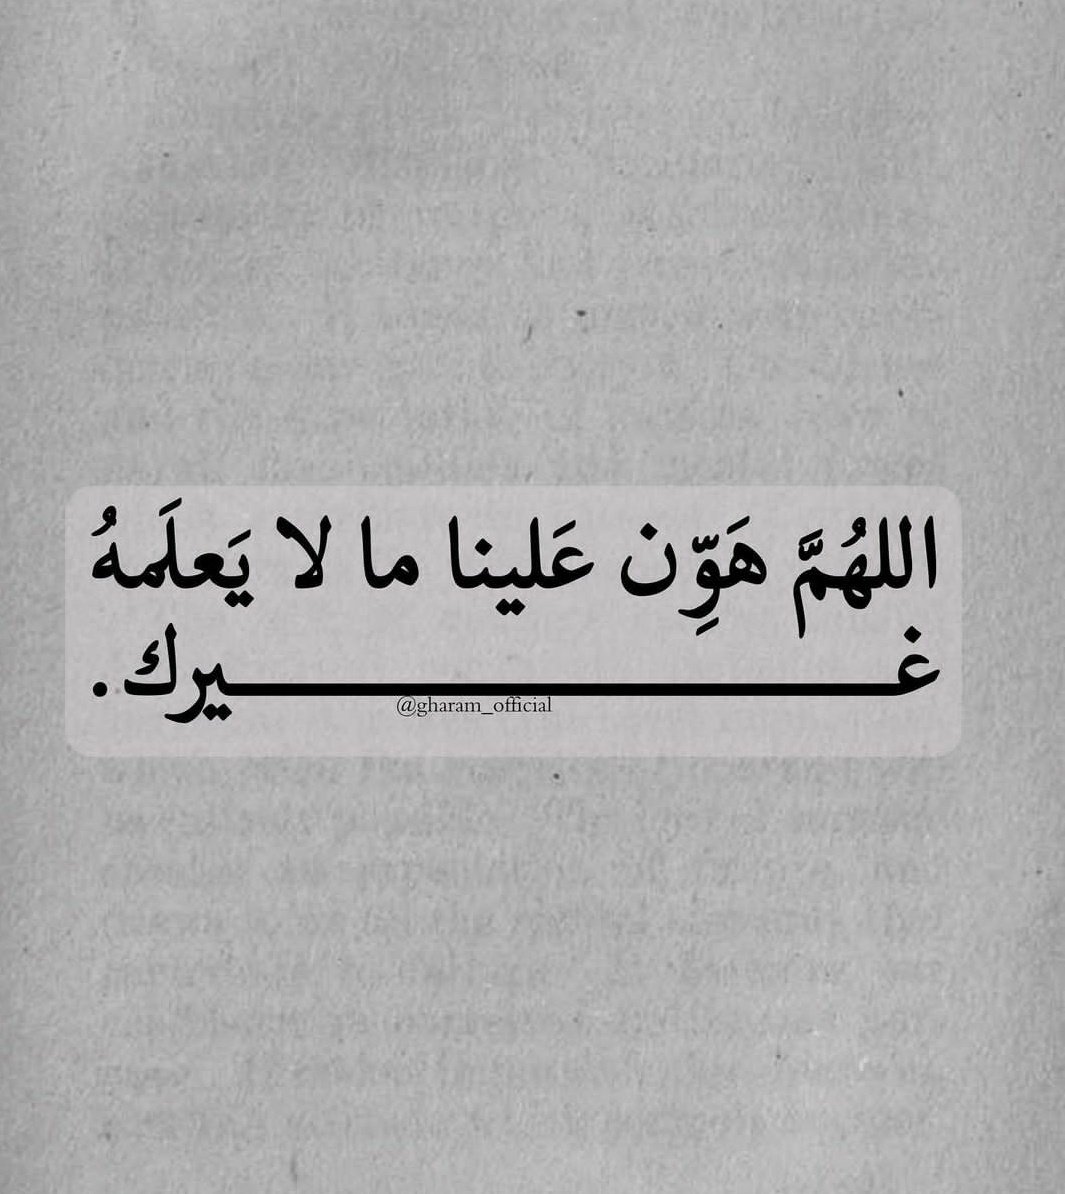 اللهُمَّ هَوِّن عَلينا ما لا يَعلَمهُ
غـــــــــــــــــــــــــــــيرك.
@gharam_official